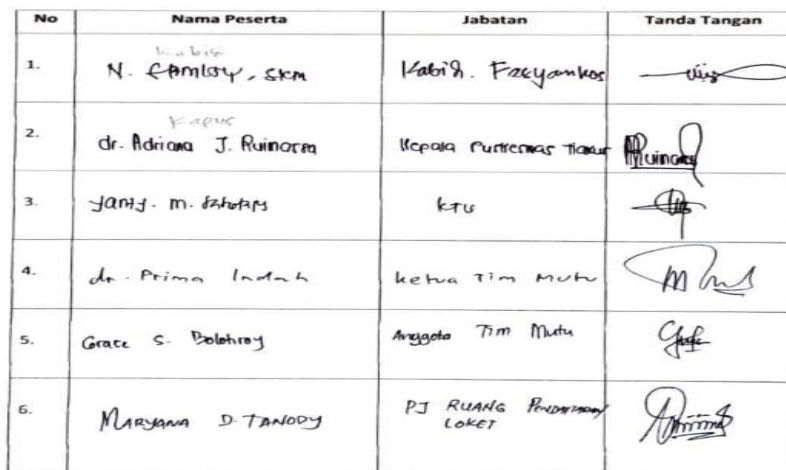 No Nama Peserta Jabatan Tanda Tangan
Kabid
1. N. SKM Kabid. Fasyankes
Kapus
2. dr. Adriana J. Ruinorsa Kepala Puskesmas
3. Janty. M. KTU
4. dr. Prima Indah Ketua Tim Mutu
5. Grace S. Bolohroy Anggota Tim Mutu
6. MARYANA D. TANODY PJ RUANG PENDAFTARAN/
LOKET